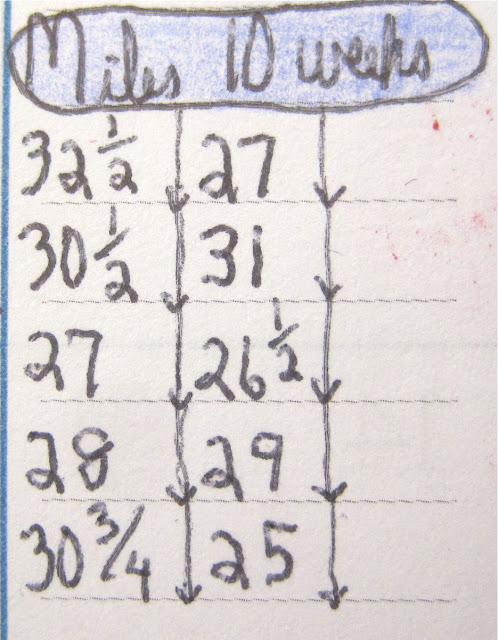 Miles 10 weeks
32 1/2 27
30 1/2 31
27 26 1/2
28 29
30 3/4 25